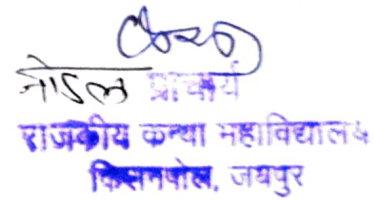 नोडल प्राचार्य
राजकीय कन्या महाविद्यालय
किशनपोल, जयपुर